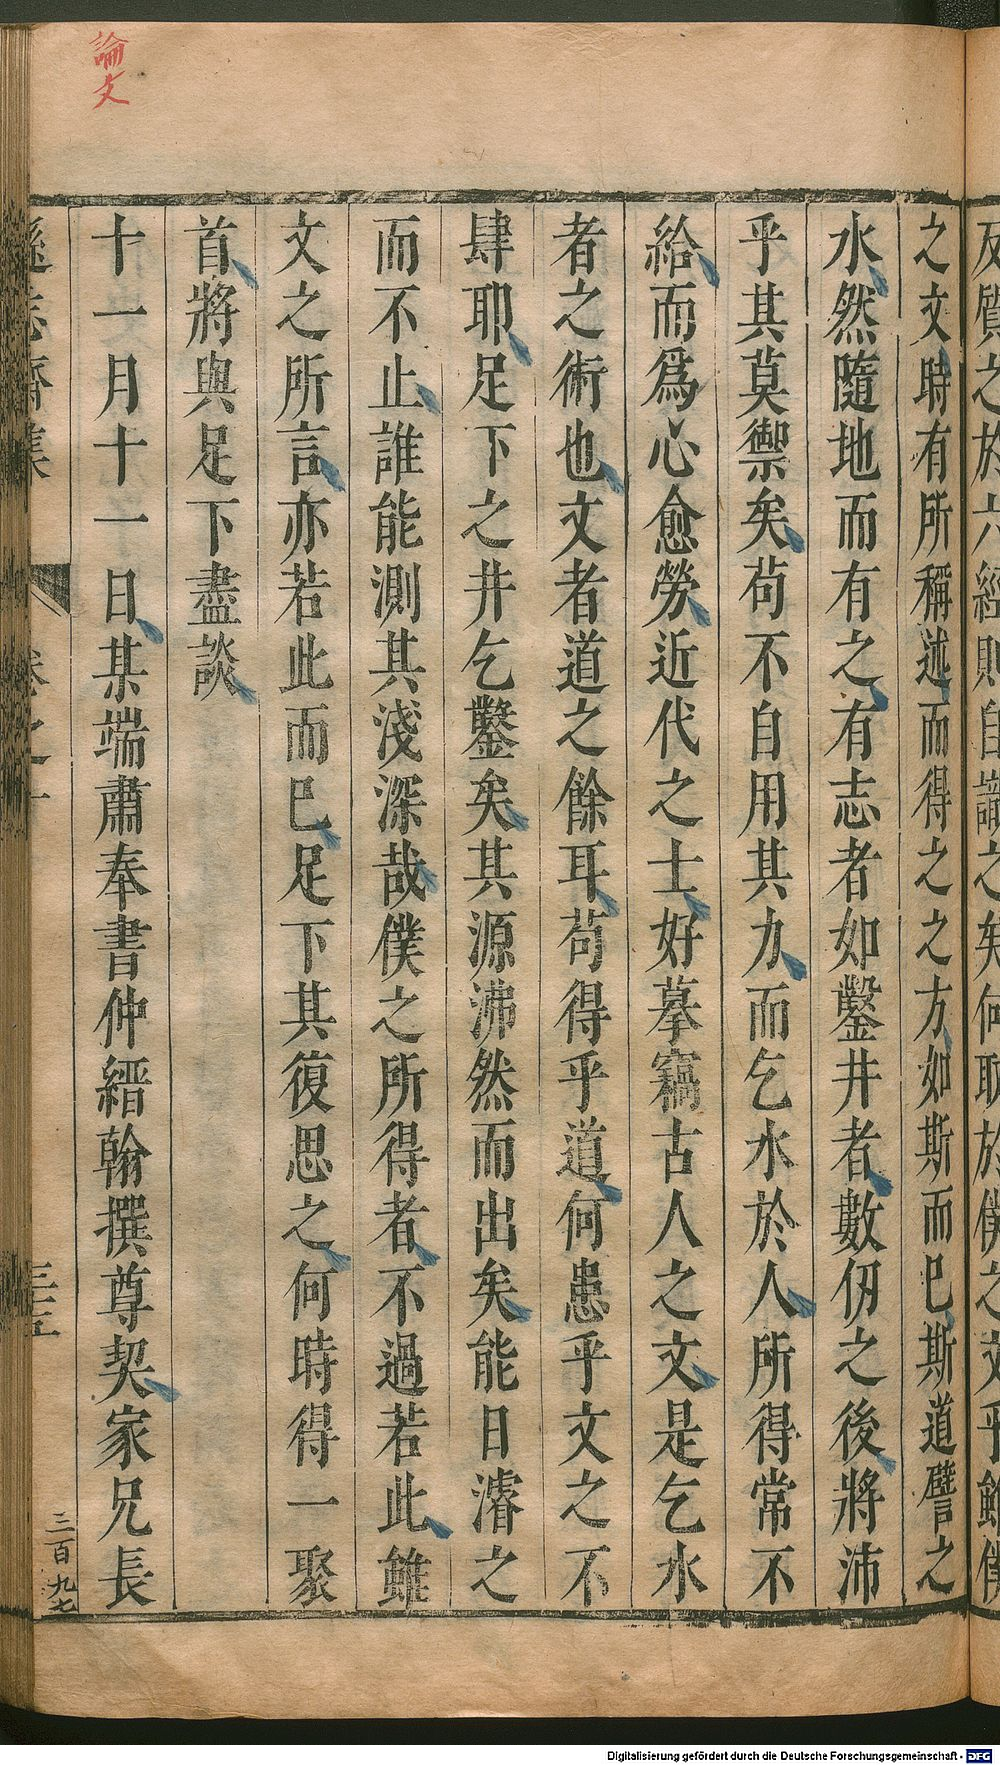 論文
及質之於六經則自識之矣何取於僕之文乎雖僕
之文時有所稱述而得之之方如斯而已斯道譬之
水然隨地而有之有志者如鑿井者數仞之後將沛
乎其莫禦矣苟不自用其力而乞水於人所得常不
給而爲心愈勞近代之士好摹竊古人之文是乞水
者之術也文者道之餘耳苟得乎道何患乎文之不
肆耶足下之井乞鑿矣其源沸然而出矣能日濬之
而不止誰能測其淺深哉僕之所得者不過若此雖
文之所言亦若此而已足下其復思之何時得一聚
首將與足下盡談
十一月十一日某端肅奉書仲縉翰撰尊契家兄長
遜志齋集 卷之十 三五 三百九七
Digitalisierung gefördert durch die Deutsche Forschungsgemeinschaft - DFG